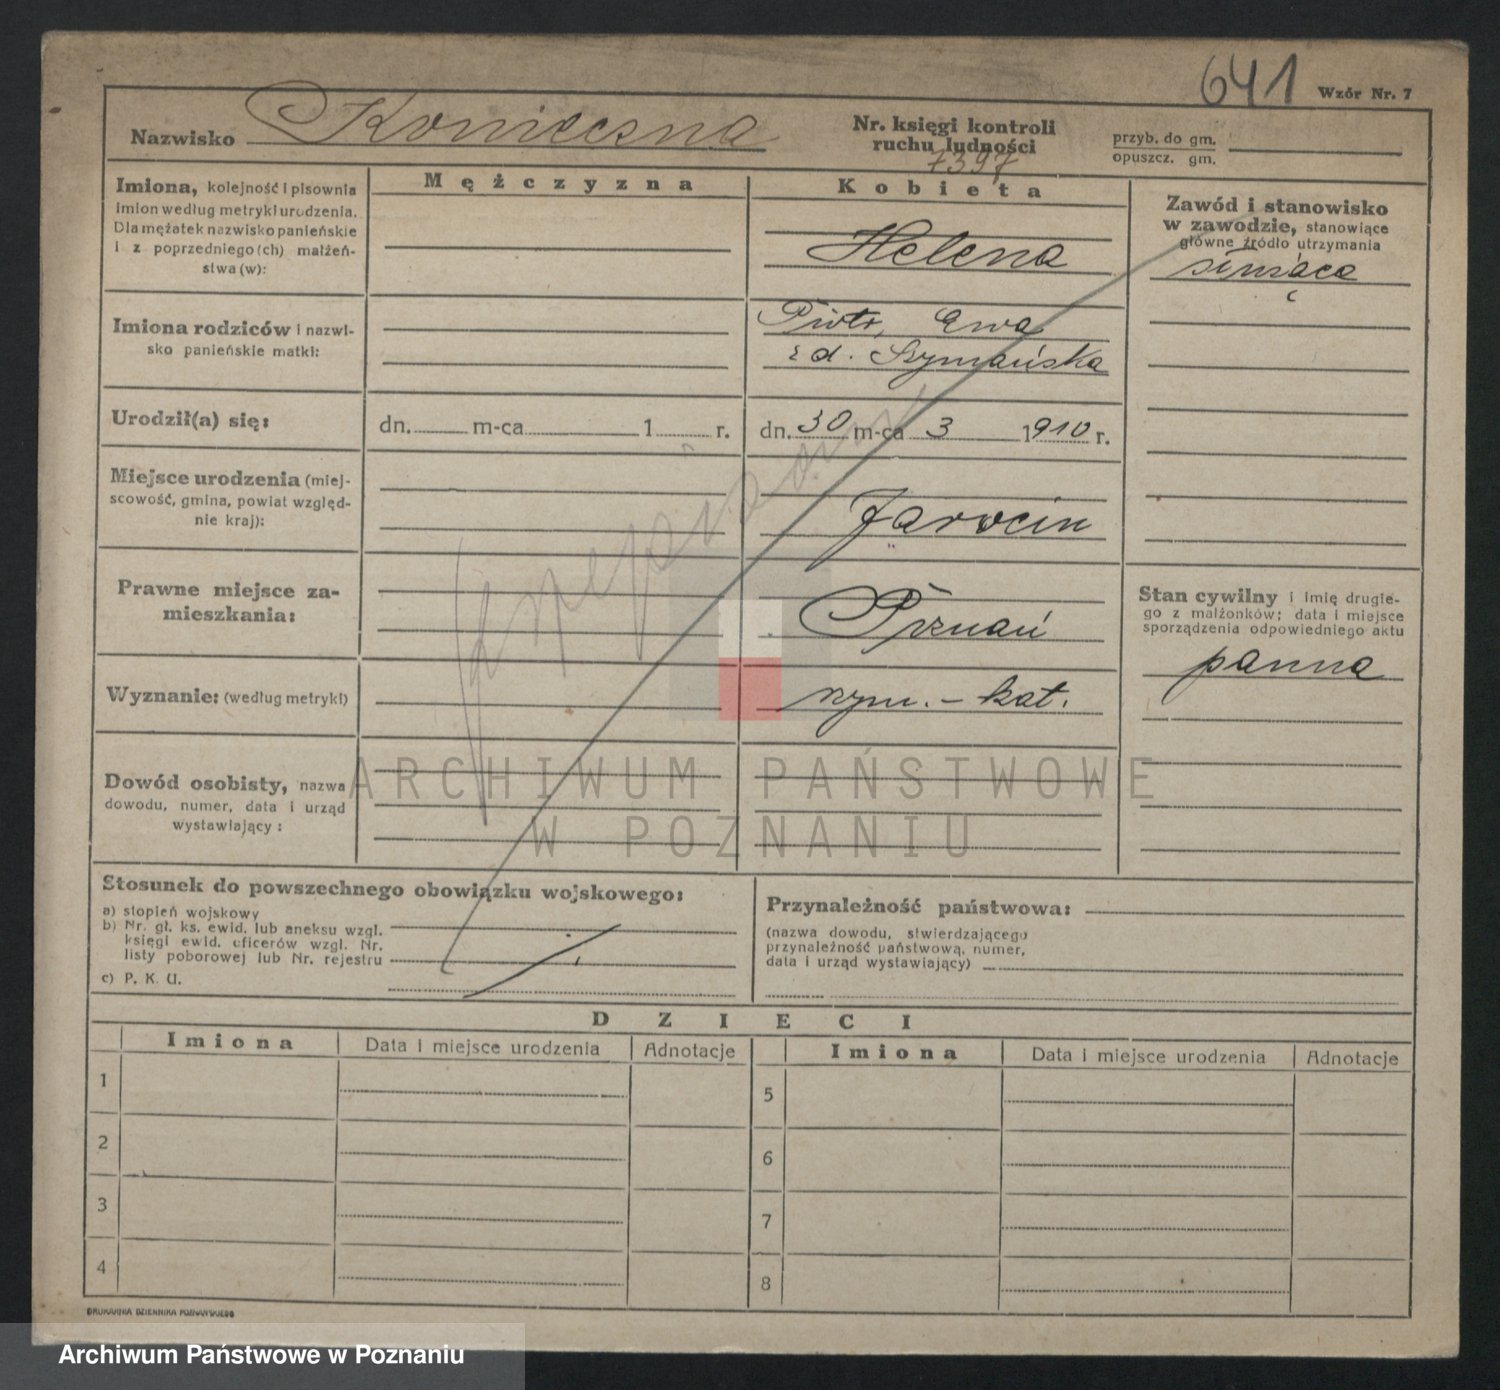 641 Wzór Nr. 7
Nazwisko Konieczna
Nr. księgi kontroli
ruchu ludności
7397
przyb. do gm.
opuszcz. gm.
Imiona, kolejność i pisownia
imion według metryki urodzenia.
Dla mężatek nazwisko panieńskie
i z poprzedniego (ch) małżeń-
stwa (w):
Mężczyzna
Kobieta
Helena
Zawód i stanowisko
w zawodzie, stanowiące
główne źródło utrzymania
Imiona rodziców i nazwi-
sko panieńskie matki:
Piotr, Ewa
zd. Szymańska
Urodził(a) się:
dn. m-ca 1 r.
dn. 30 m-ca 3 1910 r.
Miejsce urodzenia (miej-
scowość, gmina, powiat względ-
nie kraj):
Jarocin
Prawne miejsce za-
mieszkania:
Poznań
Stan cywilny i imię drugie-
go z małżonków; data i miejsce
sporządzenia odpowiedniego aktu
panna
Wyznanie: (według metryki)
rzym.-kat.
Dowód osobisty, nazwa
dowodu, numer, data i urząd
wystawiający:
ARCHIWUM PAŃSTWOWE
W POZNANIU
Stosunek do powszechnego obowiązku wojskowego:
a) stopień wojskowy
b) Nr. gł. ks. ewid. lub aneksu wzgl.
księgi ewid. oficerów wzgl. Nr.
listy poborowej lub Nr. rejestru
c) P. K. U.
Przynależność państwowa:
(nazwa dowodu, stwierdzającego
przynależność państwową, numer,
data i urząd wystawiający)
DZIECI
Imiona Data i miejsce urodzenia Adnotacje Imiona Data i miejsce urodzenia Adnotacje
1 5
2 6
3 7
4 8
DRUKARNIA DZIENNIKA POZNAŃSKIEGO
Archiwum Państwowe w Poznaniu